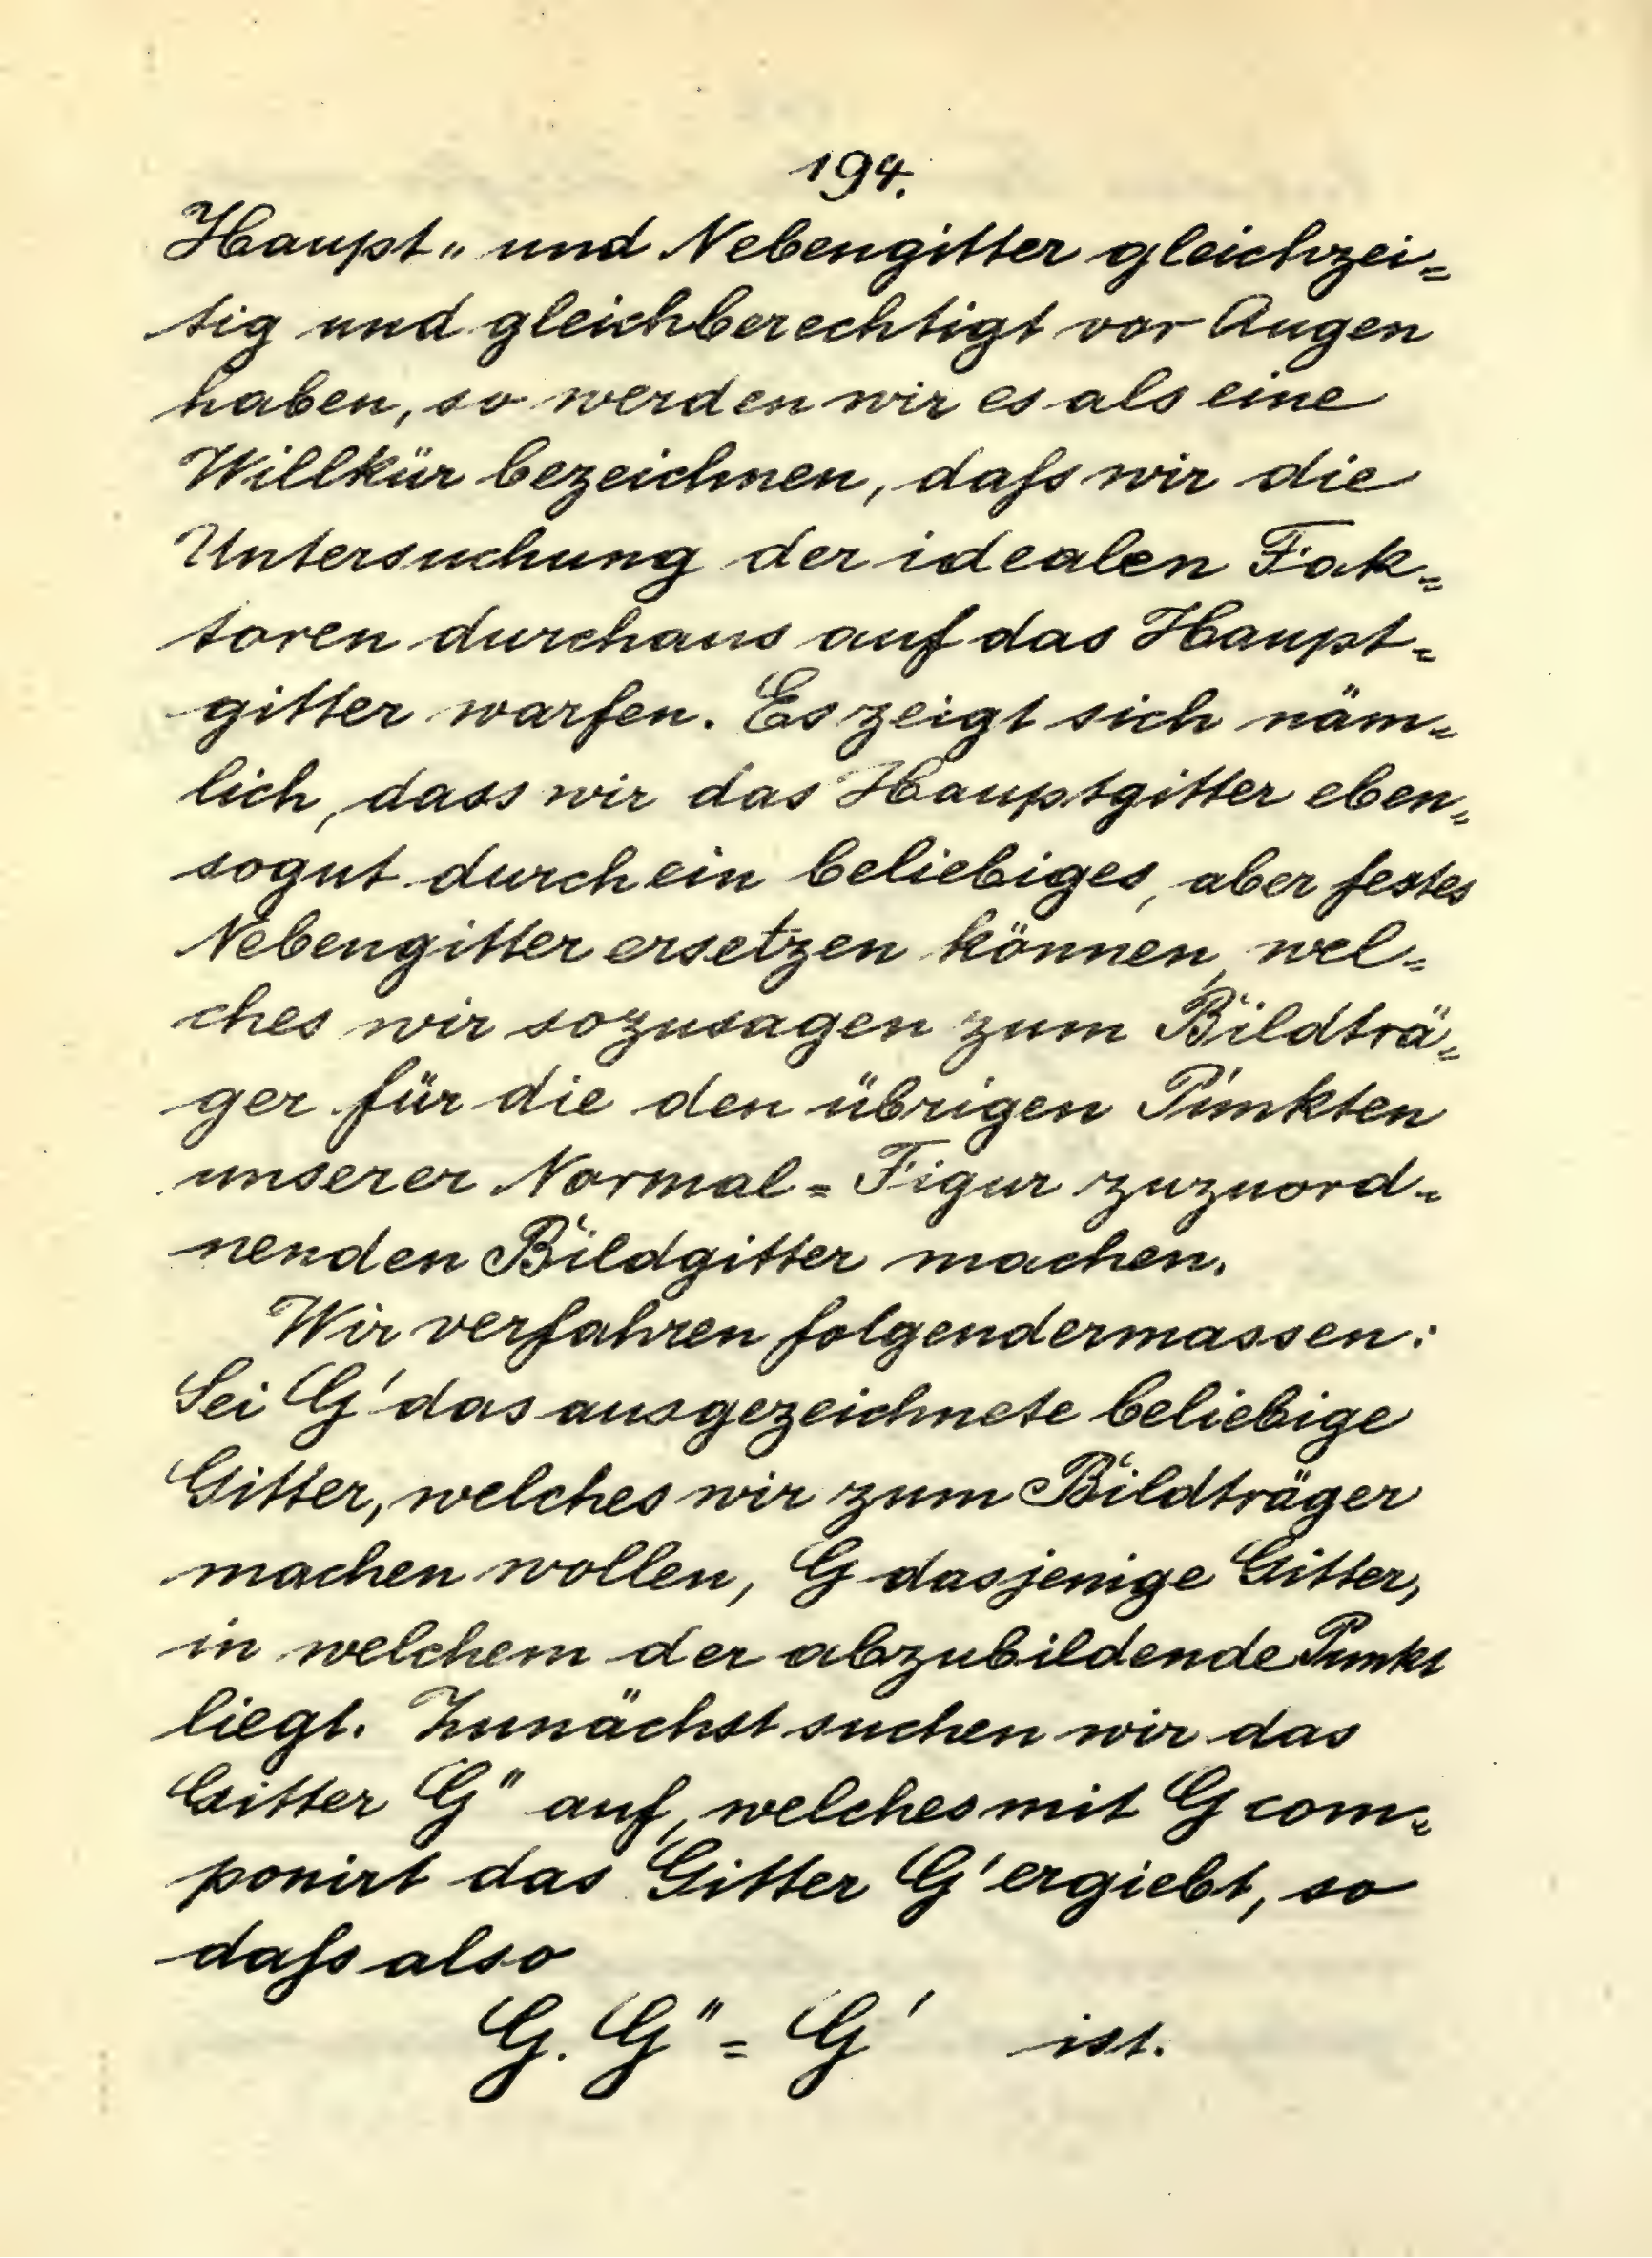 194.
Haupt= und Nebengitter gleichzei=
tig und gleichberechtigt vor Augen
haben, so werden wir es als eine
Willkür bezeichnen, daſs wir die
Untersuchung der idealen Fak=
toren durchaus auf das Haupt=
gitter warfen. Es zeigt sich näm=
lich, dass wir das Hauptgitter eben=
sogut durch ein beliebiges, aber festes
Nebengitter ersetzen können, wel=
ches wir sozusagen zum Bildträ=
ger für die den übrigen Punkten
unserer Normal=Figur zuzuord=
nenden Bildgitter machen.
Wir verfahren folgendermassen:
Sei G' das ausgezeichnete beliebige
Gitter, welches wir zum Bildträger
machen wollen, G dasjenige Gitter,
in welchem der abzubildende Punkt
liegt. Zunächst suchen wir das
Gitter G'' auf, welches mit G com=
ponirt das Gitter G' ergiebt, so
daſs also
G. G'' = G' ist.